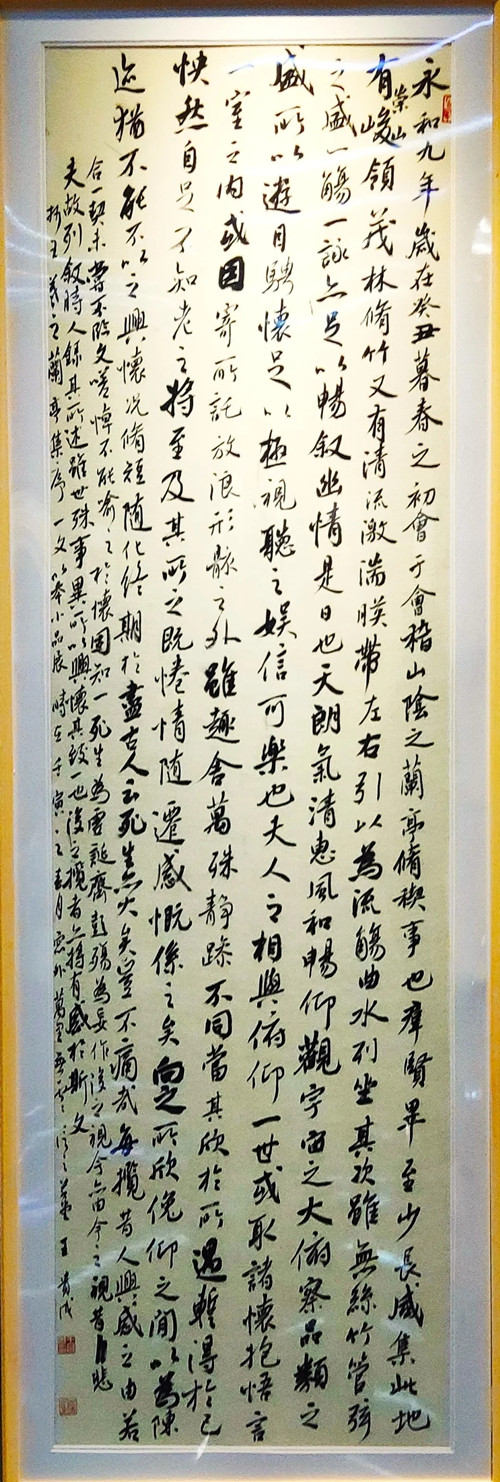 永和九年歲在癸丑暮春之初會于會稽山陰之蘭亭脩稧事也群賢畢至少長咸集此地
有崇山峻領茂林脩竹又有清流激湍暎帶左右引以為流觴曲水列坐其次雖無絲竹管弦
之盛一觴一詠亦足以暢叙幽情是日也天朗氣清惠風和暢仰觀宇宙之大俯察品類之
盛所以遊目騁懷足以極視聽之娛信可樂也夫人之相與俯仰一世或取諸懷抱悟言
一室之内或因寄所託放浪形骸之外雖趣舍萬殊静躁不同當其欣於所遇蹔得於己
怏然自足不知老之將至及其所之既惓情随遷感慨係之矣向之所欣俛仰之閒以為陳
迹猶不能不以之興懷況脩短随化終期於盡古人云死生亦大矣豈不痛哉每攬昔人興感之由若
合一契未嘗不臨文嗟悼不能喻之於懷固知一死生為虛誕齊彭殤為妄作後之視今亦由今之視昔悲
夫故列叙時人錄其所述雖世殊事異所以興懷其致一也後之攬者亦將有感於斯文
抄王羲之蘭亭集序一文以奉小品展時在壬寅之月王貴成